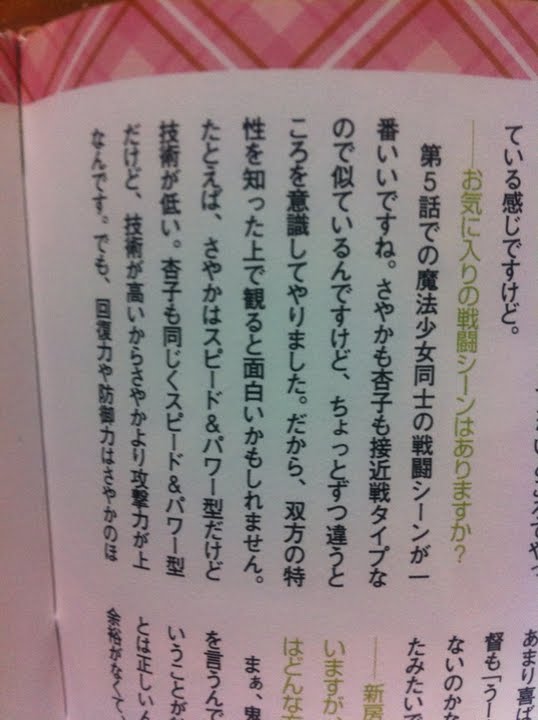 ている感じですけど。
――お気に入りの戦闘シーンはありますか？
第5話での魔法少女同士の戦闘シーンが一
番いいですね。さやかも杏子も接近戦タイプな
ので似ているんですけど、ちょっとずつ違うと
ころを意識してやりました。だから、双方の特
性を知った上で観ると面白いかもしれません。
たとえば、さやかはスピード＆パワー型だけど
技術が低い。杏子も同じくスピード＆パワー型
だけど、技術が高いからさやかより攻撃力が上
なんです。でも、回復力や防御力はさやかのほ
あまり喜ば
督も「うー
ないのかな
たみたいで
――新房
いますが、
はどんな方
まぁ、鬼
を言うんで
いうことが
とは正しいん
余裕がなくて、